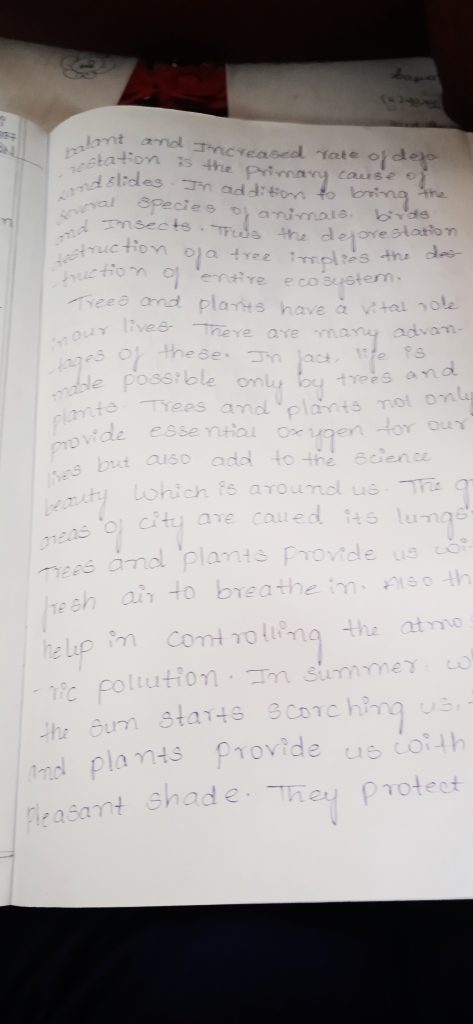 and Increased rate of defo
restation is the primary cause of
Landslides. In addition to bring the
several species of animals. birds
and Insects. Thus the deforestation
destruction of a tree implies the des
truction of entire ecosystem.
Trees and plants have a vital role
in our lives There are many advan-
tages of these. In fact, life is
made possible only by trees and
plants. Trees and plants not only
provide essential oxygen for our
lives but also add to the science
beauty which is around us. The g
areas of city are called its lungs.
Trees and plants provide us wi
fresh air to breathe in. Also th
help in controlling the atmos
ric pollution. In summer. w
the sun starts scorching us,
and plants provide us with
Pleasant shade. They protect